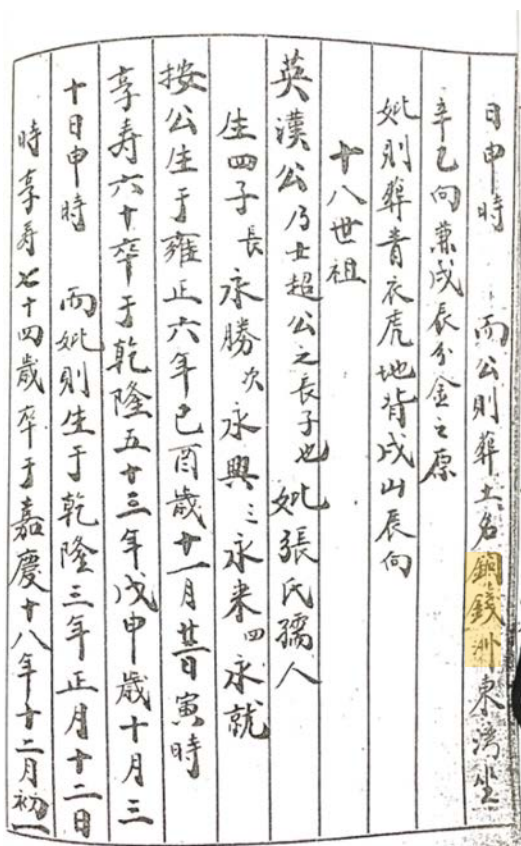 日申時　而公則葬土名銅錢洲東灣坐
辛乙向兼戌辰分金之原
妣則葬青衣虎地背戌山辰向
十八世祖
英漢公乃士超公之長子也妣張氏孺人
生四子長永勝次永興三永来四永就
按公生于雍正六年己酉歲十一月廿一日寅時
享寿六十卒于乾隆五十三年戊申歲十月三
十日申時　而妣則生于乾隆三年正月十二日
時享寿七十四歲卒于嘉慶十八年十二月初一